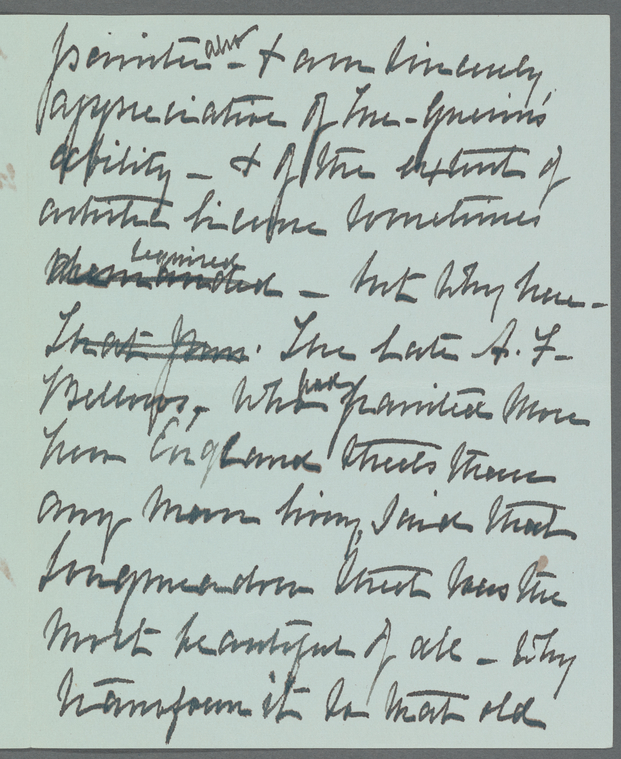 painter also – & am sincerely
appreciative of Mr. Guerin's
ability – & of the extent of
artistic license sometimes
demanded required – but why here –
That from. The late A. F.
Bellows, who had painted more
New England streets than
any man living, said that
Longmeadow street was the
most beautiful of all – why
transform it to that old